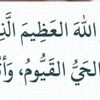 اللهَ العَظِيمَ الَّذِي
الحَيُّ القَيُّومُ، وَأَتُ